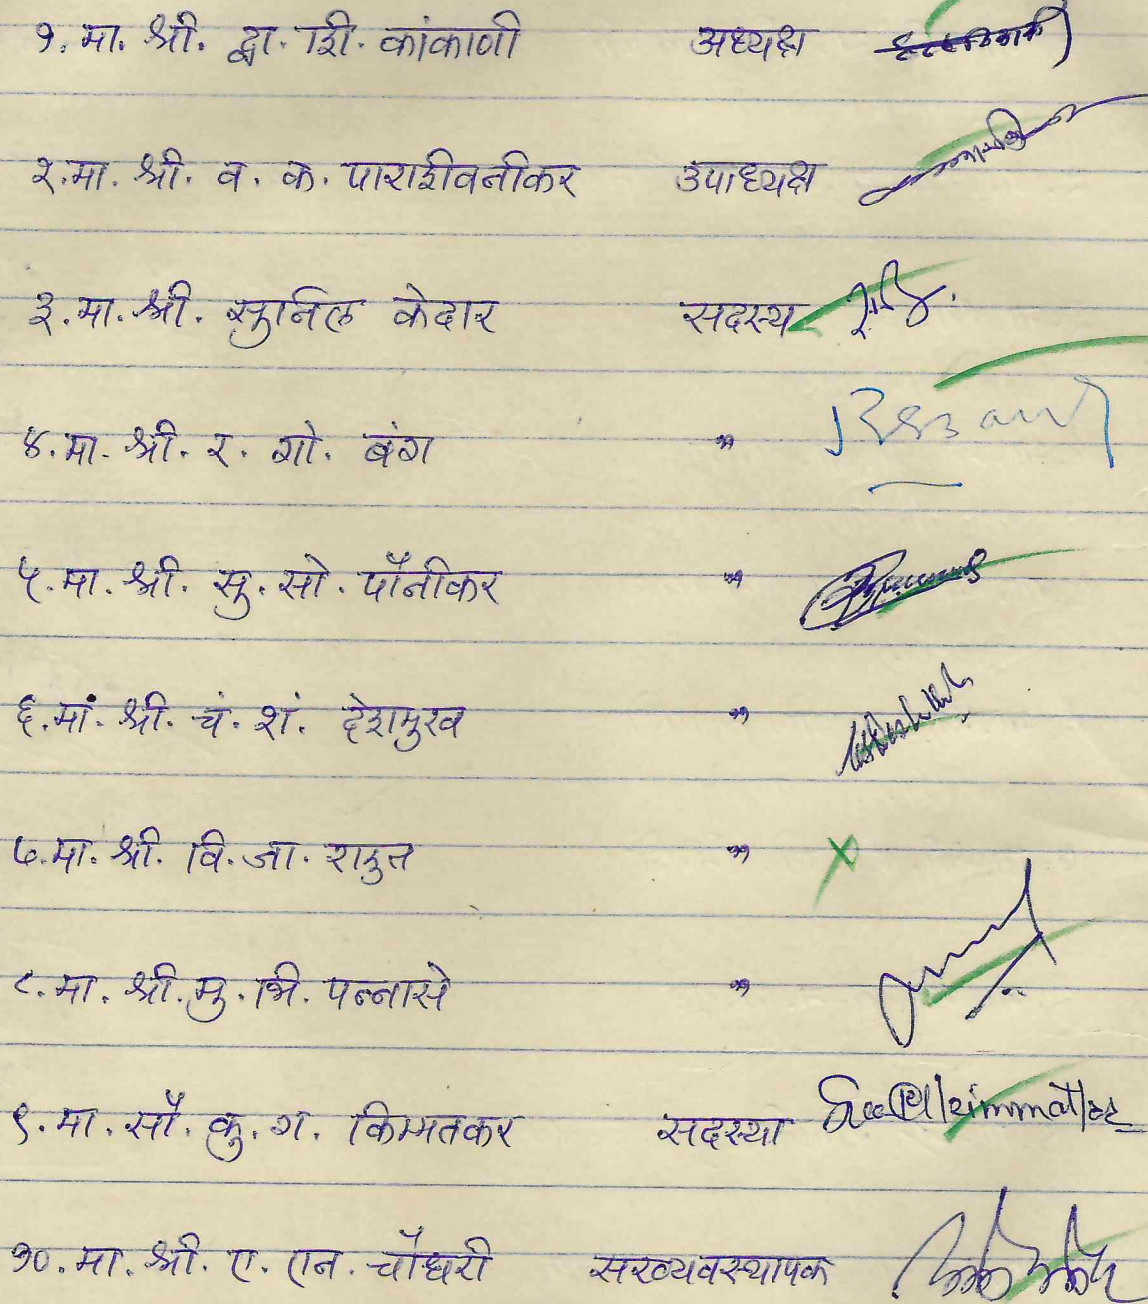 १. मा. श्री. द्वा. गि. कांकाणी अध्यक्ष
२. मा. श्री. व. क. पाराशीवनीकर उपाध्यक्ष
३. मा. श्री. सुनिल केदार सदस्य
४. मा. श्री. र. गो. बंग "
५. मा. श्री. सु. सो. पौनीकर "
६. मां. श्री. चं. शं. देशमुख "
७. मा. श्री. वि. जा. राऊत "
८. मा. श्री. मु. भि. पन्नासे "
९. मा. सौ. कु. ग. किम्मतकर सदस्या
१०. मा. श्री. ए. एन. चौधरी सरव्यवस्थापक